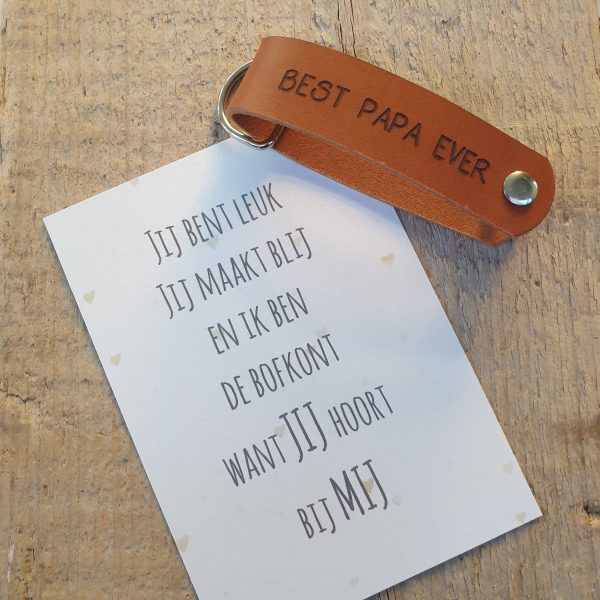 BEST PAPA EVER
JIJ BENT LEUK
JIJ MAAKT BLIJ
EN IK BEN
DE BOFKONT
WANT JIJ HOORT
BIJ MIJ